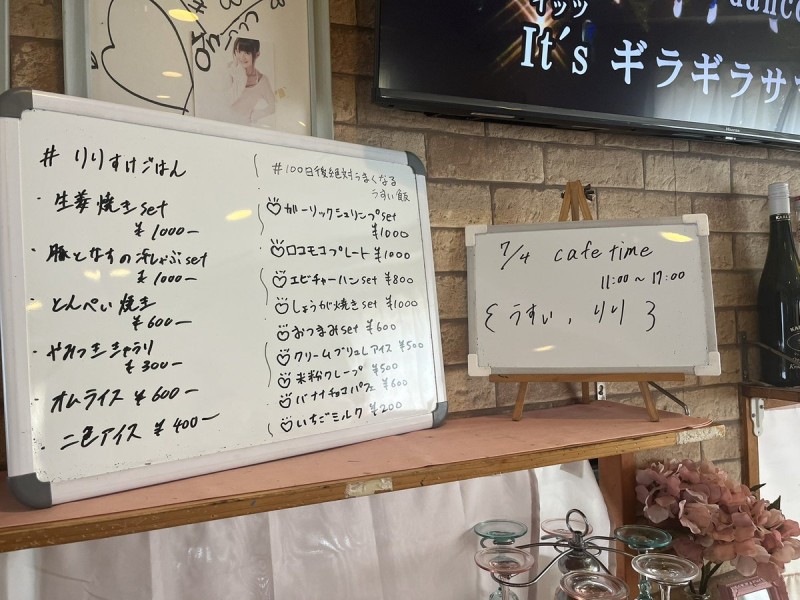 It's ギラギラサマ
dance
# りりすけごはん
・生姜焼きset
¥1000ー
・豚となすの冷しゃぶset
¥1000ー
・とんぺい焼き
¥600ー
・やみつききゅうり
¥300ー
・オムライス ¥600ー
・二色アイス ¥400ー
#100日後絶対うまくなる
うすい飯
ガーリックシュリンプset
¥1000
ロコモコプレート ¥1000
エビチャーハンset ¥800
しょうが焼きset ¥1000
おつまみset ¥600
クリームブリュレアイス ¥500
米粉クレープ ¥500
バナナチョコパフェ ¥600
いちごミルク ¥200
7/4 cafe time
11:00〜17:00
{うすい、りり}